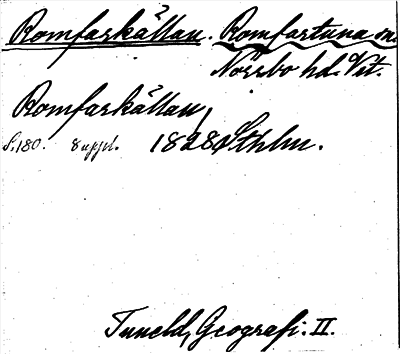 Romfarkällan. Romfartuna sn.
Norrbo hd. Vst.
Romfarkällan,
S. 180. 8 uppl. 1828. Sthlm.
Tuneld, Geografi. II.